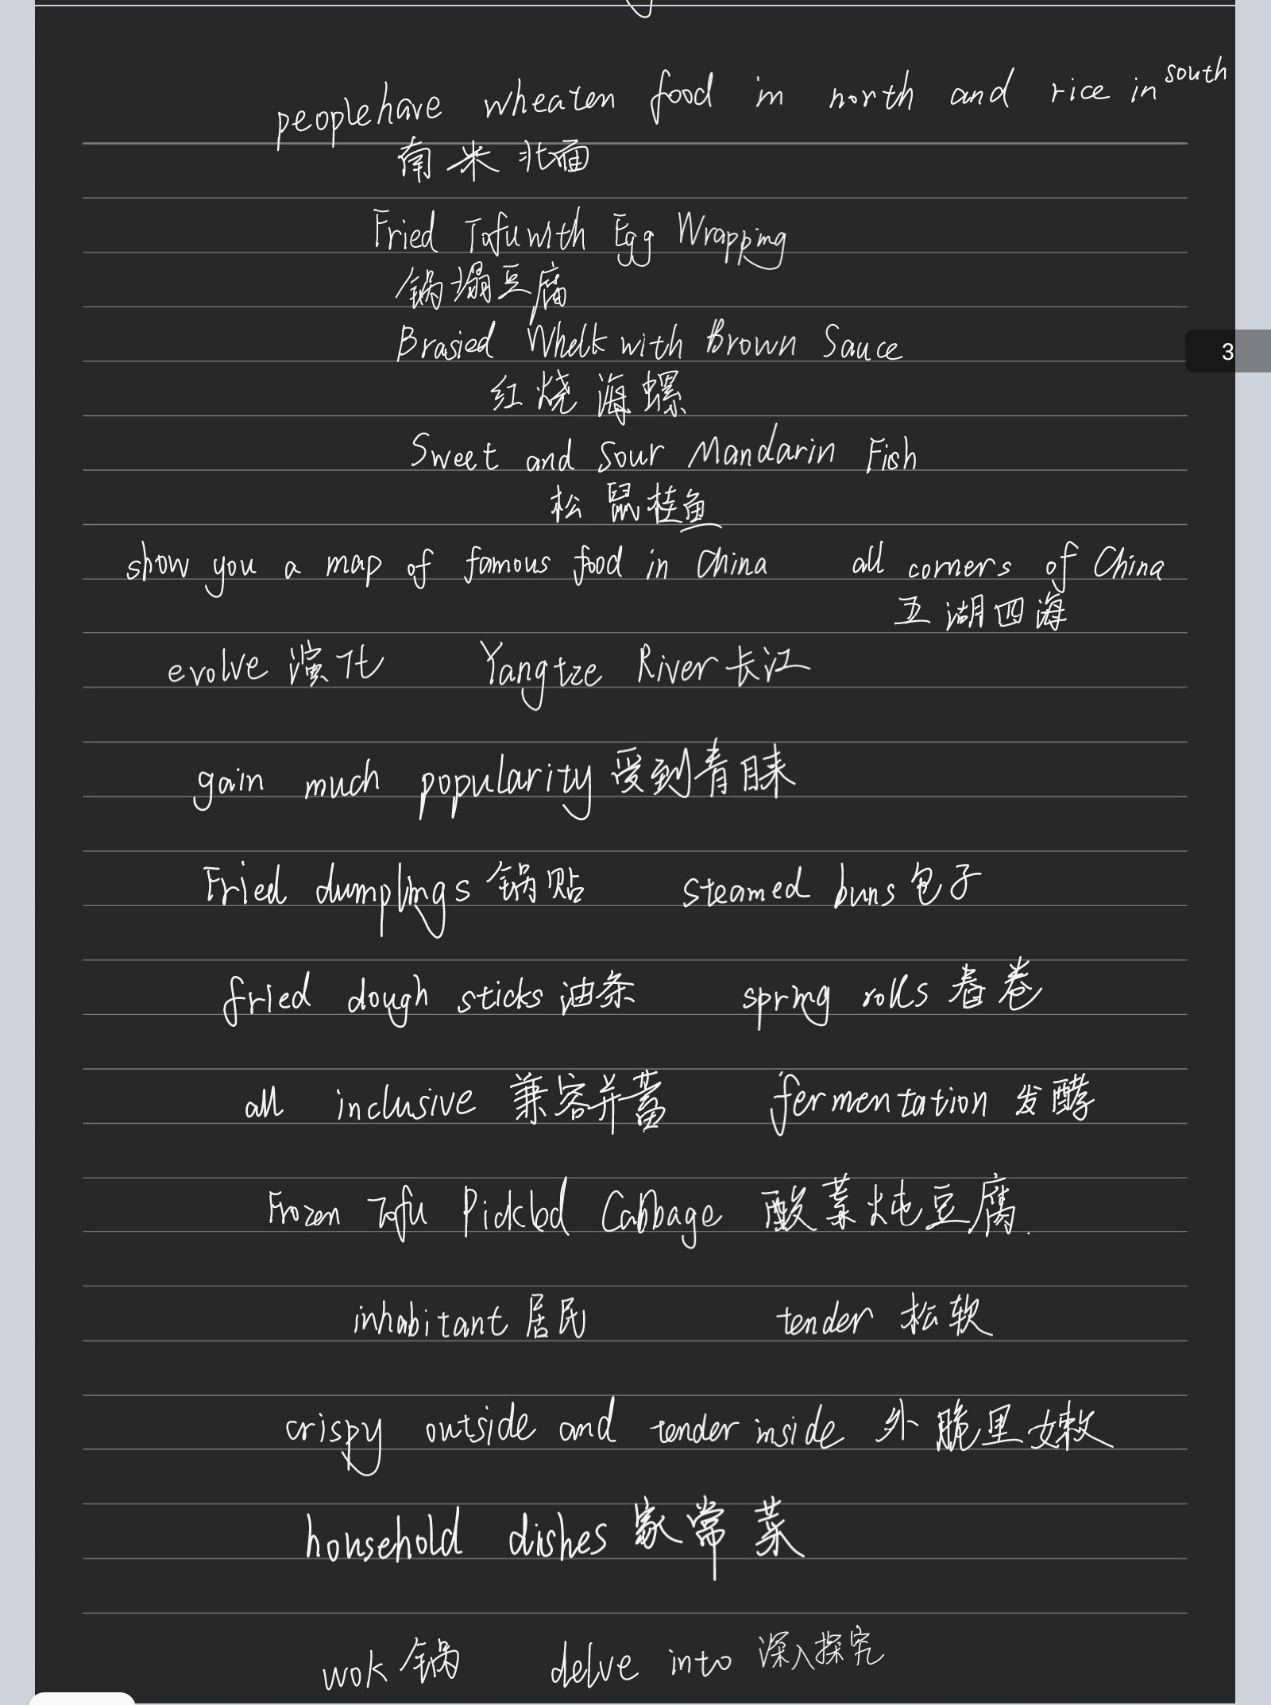 people have wheaten food in north and rice in south
南米北面
Fried Tofu with Egg Wrapping
锅塌豆腐
Brasied Whelk with Brown Sauce
红烧海螺
Sweet and Sour Mandarin Fish
松鼠桂鱼
show you a map of famous food in China all corners of China
五湖四海
evolve 演化 Yangtze River 长江
gain much popularity 受到青睐
Fried dumplings 锅贴 steamed buns 包子
fried dough sticks 油条 spring rolls 春卷
all inclusive 兼容并蓄 fermentation 发酵
Frozen Tofu Pickled Cabbage 酸菜炖豆腐.
inhabitant 居民 tender 松软
crispy outside and tender inside 外脆里嫩
household dishes 家常菜
wok 锅 delve into 深入探究
3